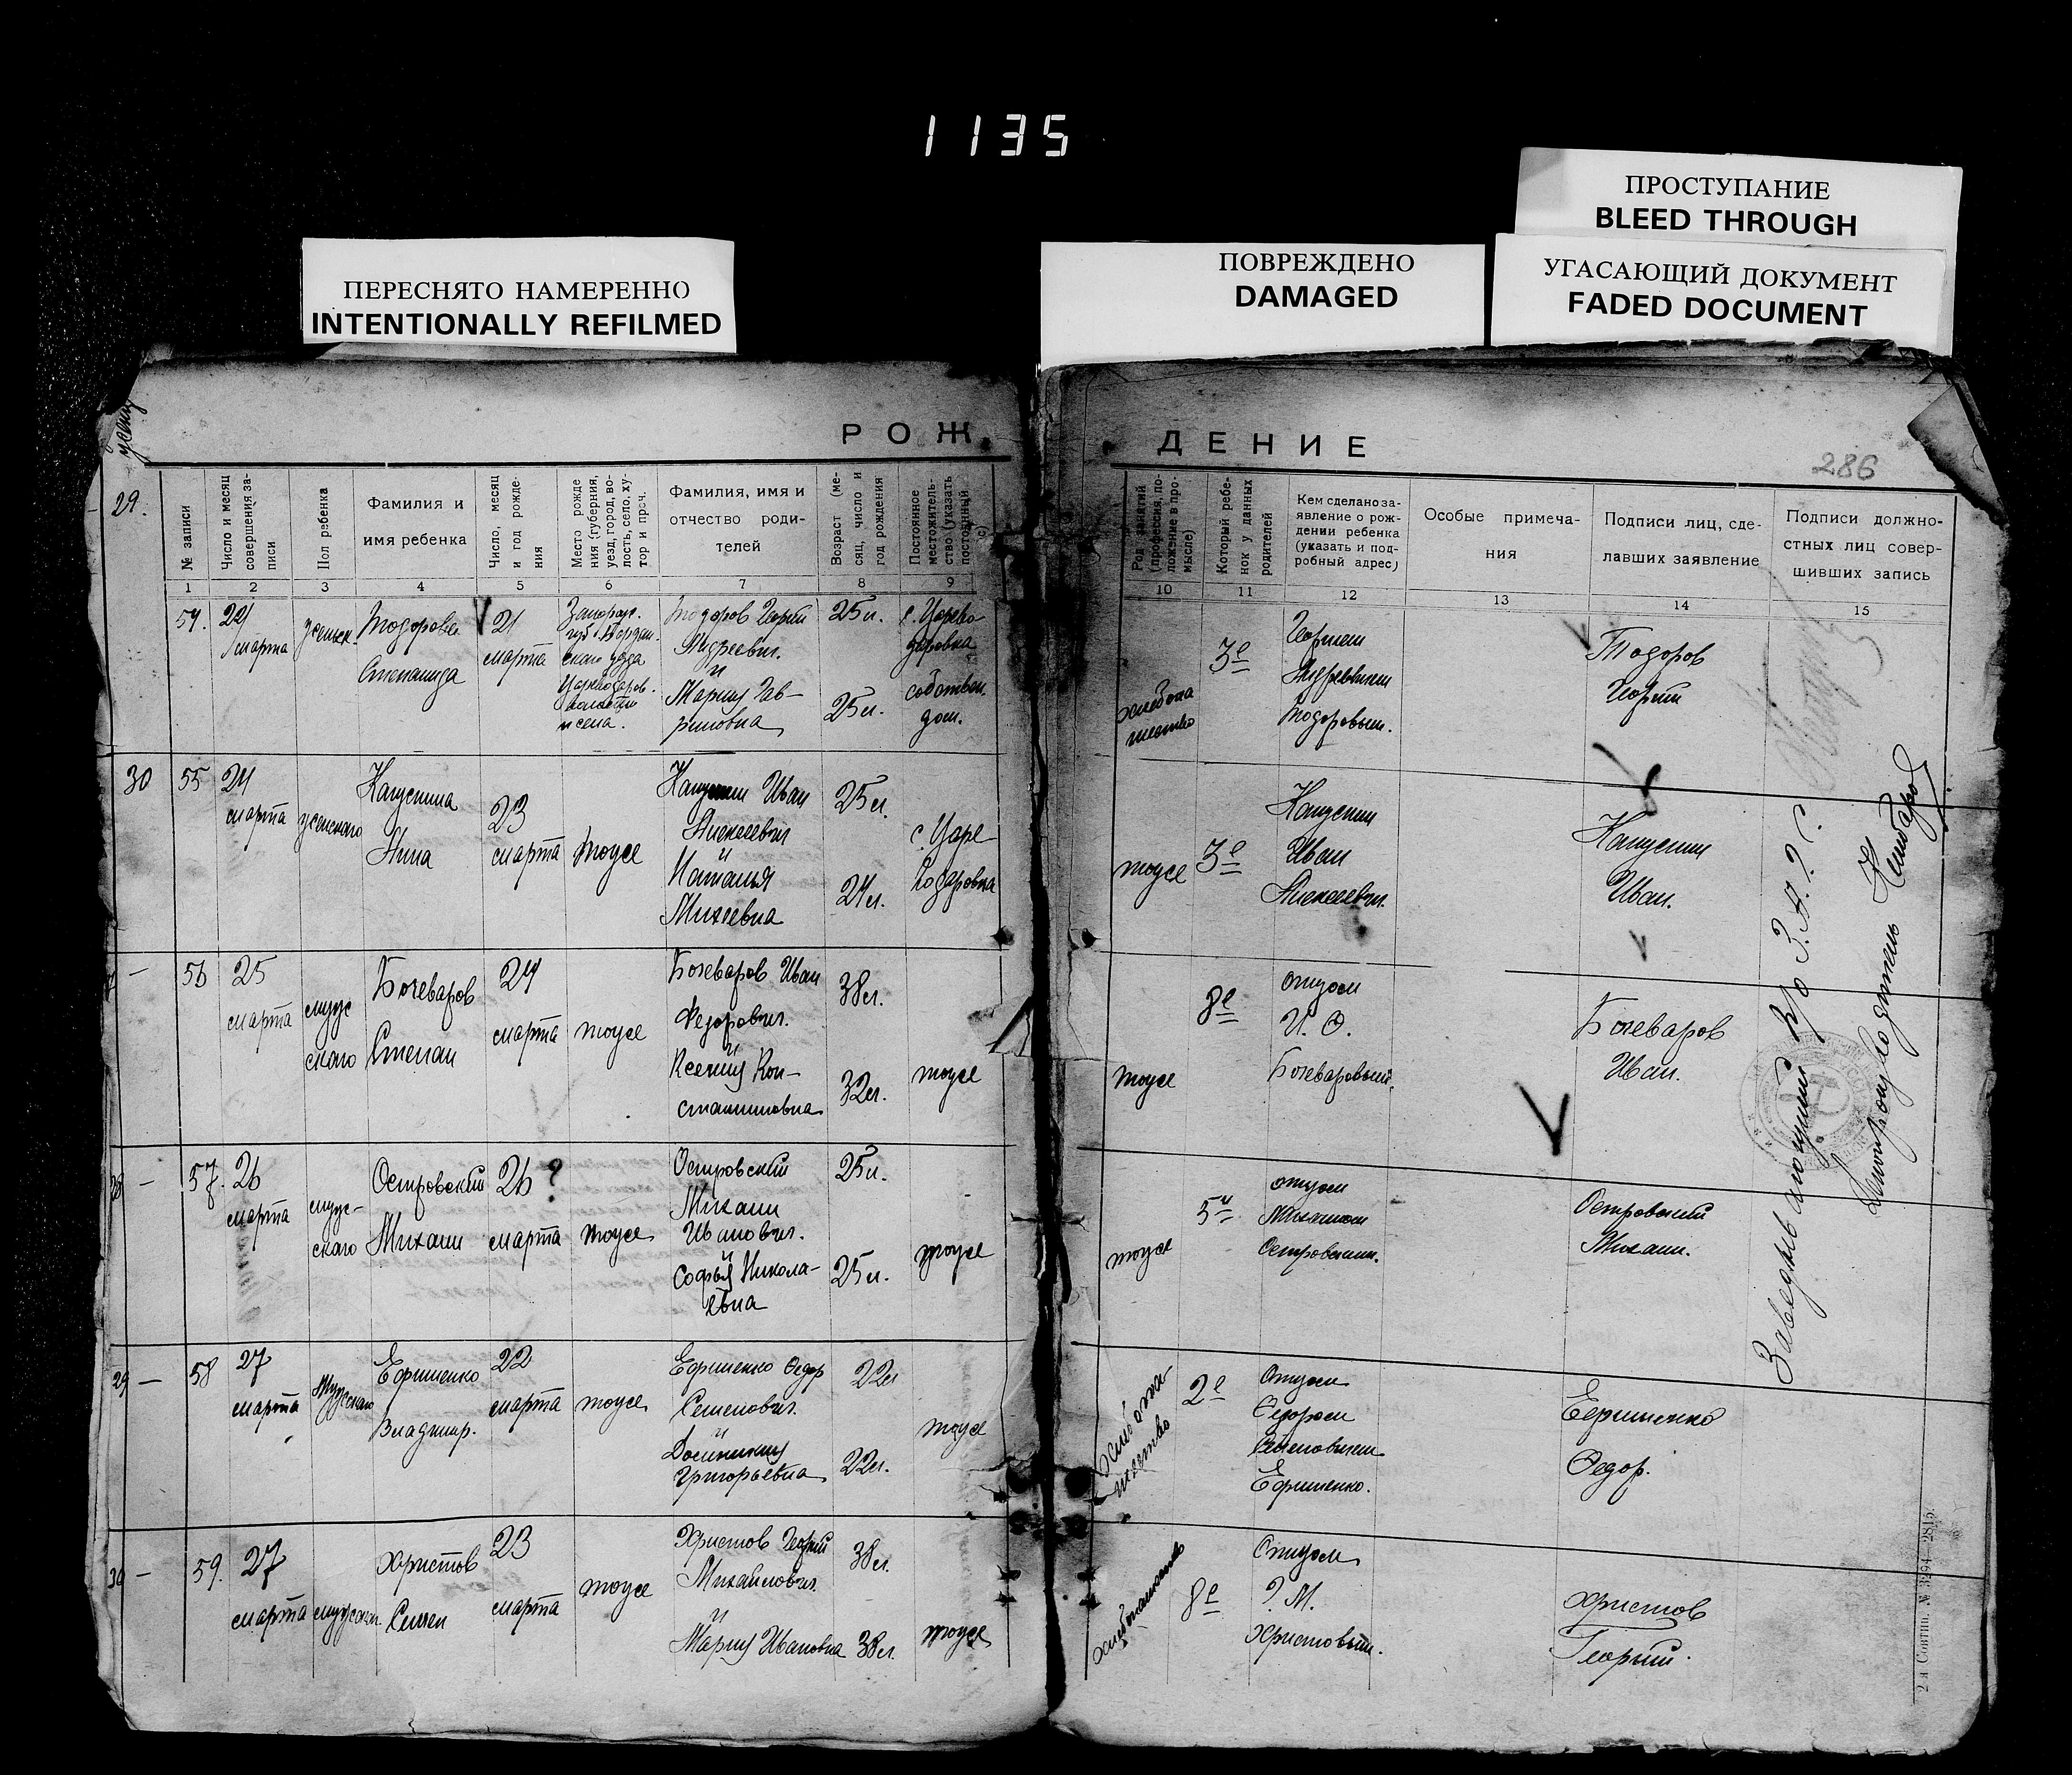 1135
ПРОСТУПАНИЕ
BLEED THROUGH
ПЕРЕСНЯТО НАМЕРЕННО
INTENTIONALLY REFILMED
ПОВРЕЖДЕНО
DAMAGED
УГАСАЮЩИЙ ДОКУМЕНТ
FADED DOCUMENT
РОЖ
ДЕНИЕ
286
29.
№ записи
Число и месяц
совершения за-
писи
Пол ребенка
Фамилия и
имя ребенка
Число, месяц
и год рожде-
ния
Место рожде
ния (губерния,
уезд, город, во-
лость, село, ху-
тор и проч.
Фамилия, имя и
отчество роди-
телей
Возраст (ме-
сяц, число и
год рождения
Постоянное
местожитель-
ство (указать
постоянный
Род занятий
(профессия, по-
ложение в про-
мысле)
Который ребе-
нок у данных
родителей
Кем сделано за-
явление о рож-
дении ребенка
(указать и под-
робный адрес)
Особые примеча-
ния
Подписи лиц, сде-
лавших заявление
Подписи должно-
стных лиц совер-
шивших запись
1
2
3
4
5
6
7
8
9
10
11
12
13
14
15
54.
24
марта
женск.
Тодорова
Степанида
21
марта
Запорож.
губ. Бердян-
ского уезда
Тодоров Георгий
Андреевич
и
Мария Гав-
риловна
25 л.
25 л.
с. Царево-
даровка
собствен.
дом.
хлебопа
шество
3е
Георгием
Андреевичем
Тодоровым.
Тодоров
Георгий
30
55
24
марта
женского
Капустина
Анна
23
марта
тоже
Капустин Иван
Алексеевич
и
Наталья
Михеевна
25 л.
24 л.
с. Царе-
Водаровка
тоже
3е
Капустин
Иван
Алексеевич
Капустин
Иван.
56
25
марта
мужс
ского
Бочеваров
Степан
24
марта
тоже
Бочеваров Иван
Федорович.
и
Ксения Кон-
стантиновна
38 л.
32 л.
тоже
тоже
8е
отцом
И. Ф.
Бочеваровым.
Бочеваров
Иван.
57.
26
марта
мужс-
ского
Островский
Михаил
26 ?
марта
тоже
Островский
Михаил
Иванович.
и
Софья Никола-
евна
25 л.
25 л.
тоже
тоже
5й
отцом
Михаилом
Островским.
Островский
Михаил.
29
58
27
марта
Мужского
Ефименко
Владимир.
22
марта
тоже
Ефименко Федор
Семенович.
и
Домникия
Григорьевна
22 л
22 л.
тоже
хлебопа
шество
2е
Отцом
Федором
Семеновичем
Ефименко.
Ефименко
Федор.
30
59.
27
марта
мужского.
Христов
Семен
23
марта
тоже
Христов Георгий
Михайлович.
и
Мария Ивановна
38 л.
38 л.
тоже
хлебопашество
8е
Отцом
Г. М.
Христовым.
Христов
Георгий.
З.А.Г.С.
Делопроизводитель
2-я Совтип. № 3294—2815.